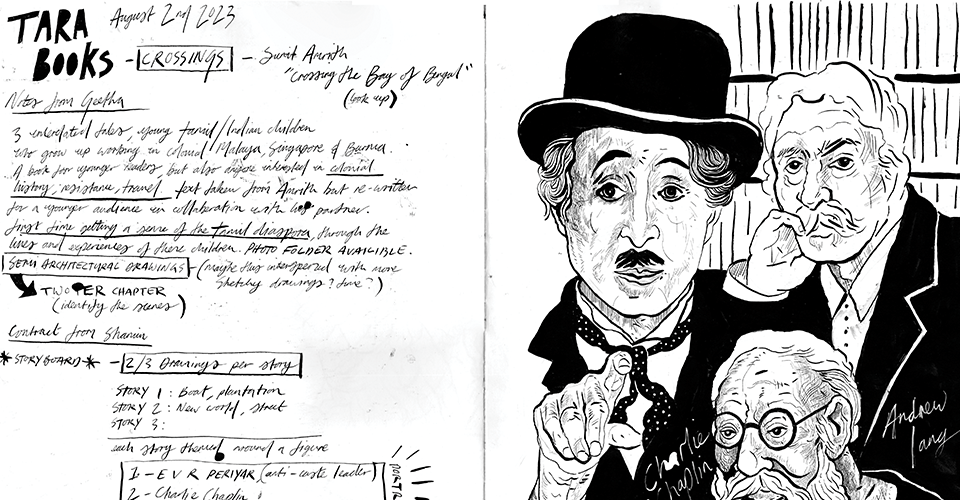 TARA BOOKS August 2nd 2023
- CROSSINGS - Sunil Amrith
"Crossing the Bay of Bengal"
(look up)
Notes from Geetha
3 interrelated tales, young tamil/Indian children
who grow up working in colonial Malaya, Singapore & Burma.
A book for younger readers, but also anyone interested in colonial
history, resistance, travel. Text taken from Amrith but re-written
for a younger audience in collaboration with his partner.
First time getting a sense of the tamil diaspora, through the
lives and experiences of these children. PHOTO FOLDER AVAILIBLE.
SEMI ARCHITECTURAL DRAWINGS - (maybe this interspersed with more
sketchy drawings?
TWO PER CHAPTER
(identify the scenes)
Contract from
*STORYBOARD* - 2/3 Drawings per story
STORY 1: Boat, plantation
STORY 2: New world, street
STORY 3:
each story themed around a figure
1 - E V R PERIYAR (anti-caste leader)
2 - Charlie Chaplin
Charlie
Chaplin
Andrew